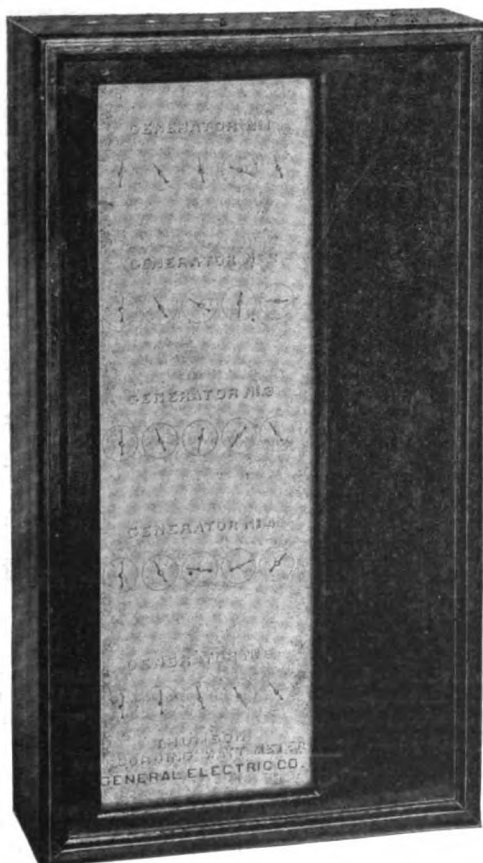 GENERATOR Nº1
GENERATOR
GENERATOR Nº3
GENERATOR Nº4
GENERATOR
THOMSON
RECORDING WATT METER
GENERAL ELECTRIC CO.